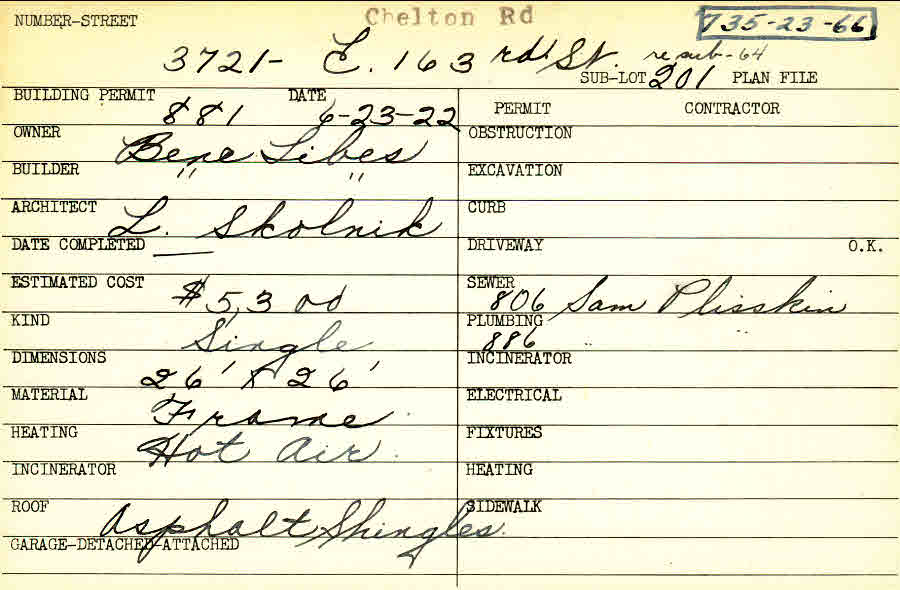 NUMBER-STREET Chelton Rd 735-23-66
3721- E. 163 rd St. resub-64
SUB-LOT 201 PLAN FILE
BUILDING PERMIT 881 DATE 6-23-22 PERMIT CONTRACTOR
OWNER Bene Libes OBSTRUCTION
BUILDER " " EXCAVATION
ARCHITECT L. Skolnik CURB
DATE COMPLETED — DRIVEWAY O.K.
ESTIMATED COST $5,300 SEWER 806 Sam Plisskin
KIND Single PLUMBING 886 " "
DIMENSIONS 26' x 26' INCINERATOR
MATERIAL Frame ELECTRICAL
HEATING Hot Air. FIXTURES
INCINERATOR HEATING
ROOF Asphalt Shingles. SIDEWALK
GARAGE-DETACHED-ATTACHED